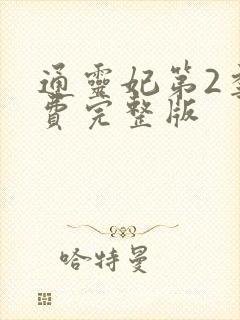 通靈妃第2
費完整版
哈特曼